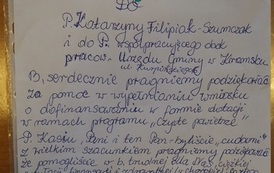 Do
P. Katarzyny Filipiak-Szumczak
i do P. współpracującego obok
pracow. Urzędu Gminy w
ul.
B. serdecznie pragniemy podziękować
za pomoc w wypełnianiu wniosku
o dofinansowanie w formie dotacji
w ramach programu „Czyste powietrze"
P. Kasiu, Pani i ten Pan - byliście „cudami"
z wielkim szacunkiem pragniemy podziękować
że pomogliście w b. trudnej dla Nas,